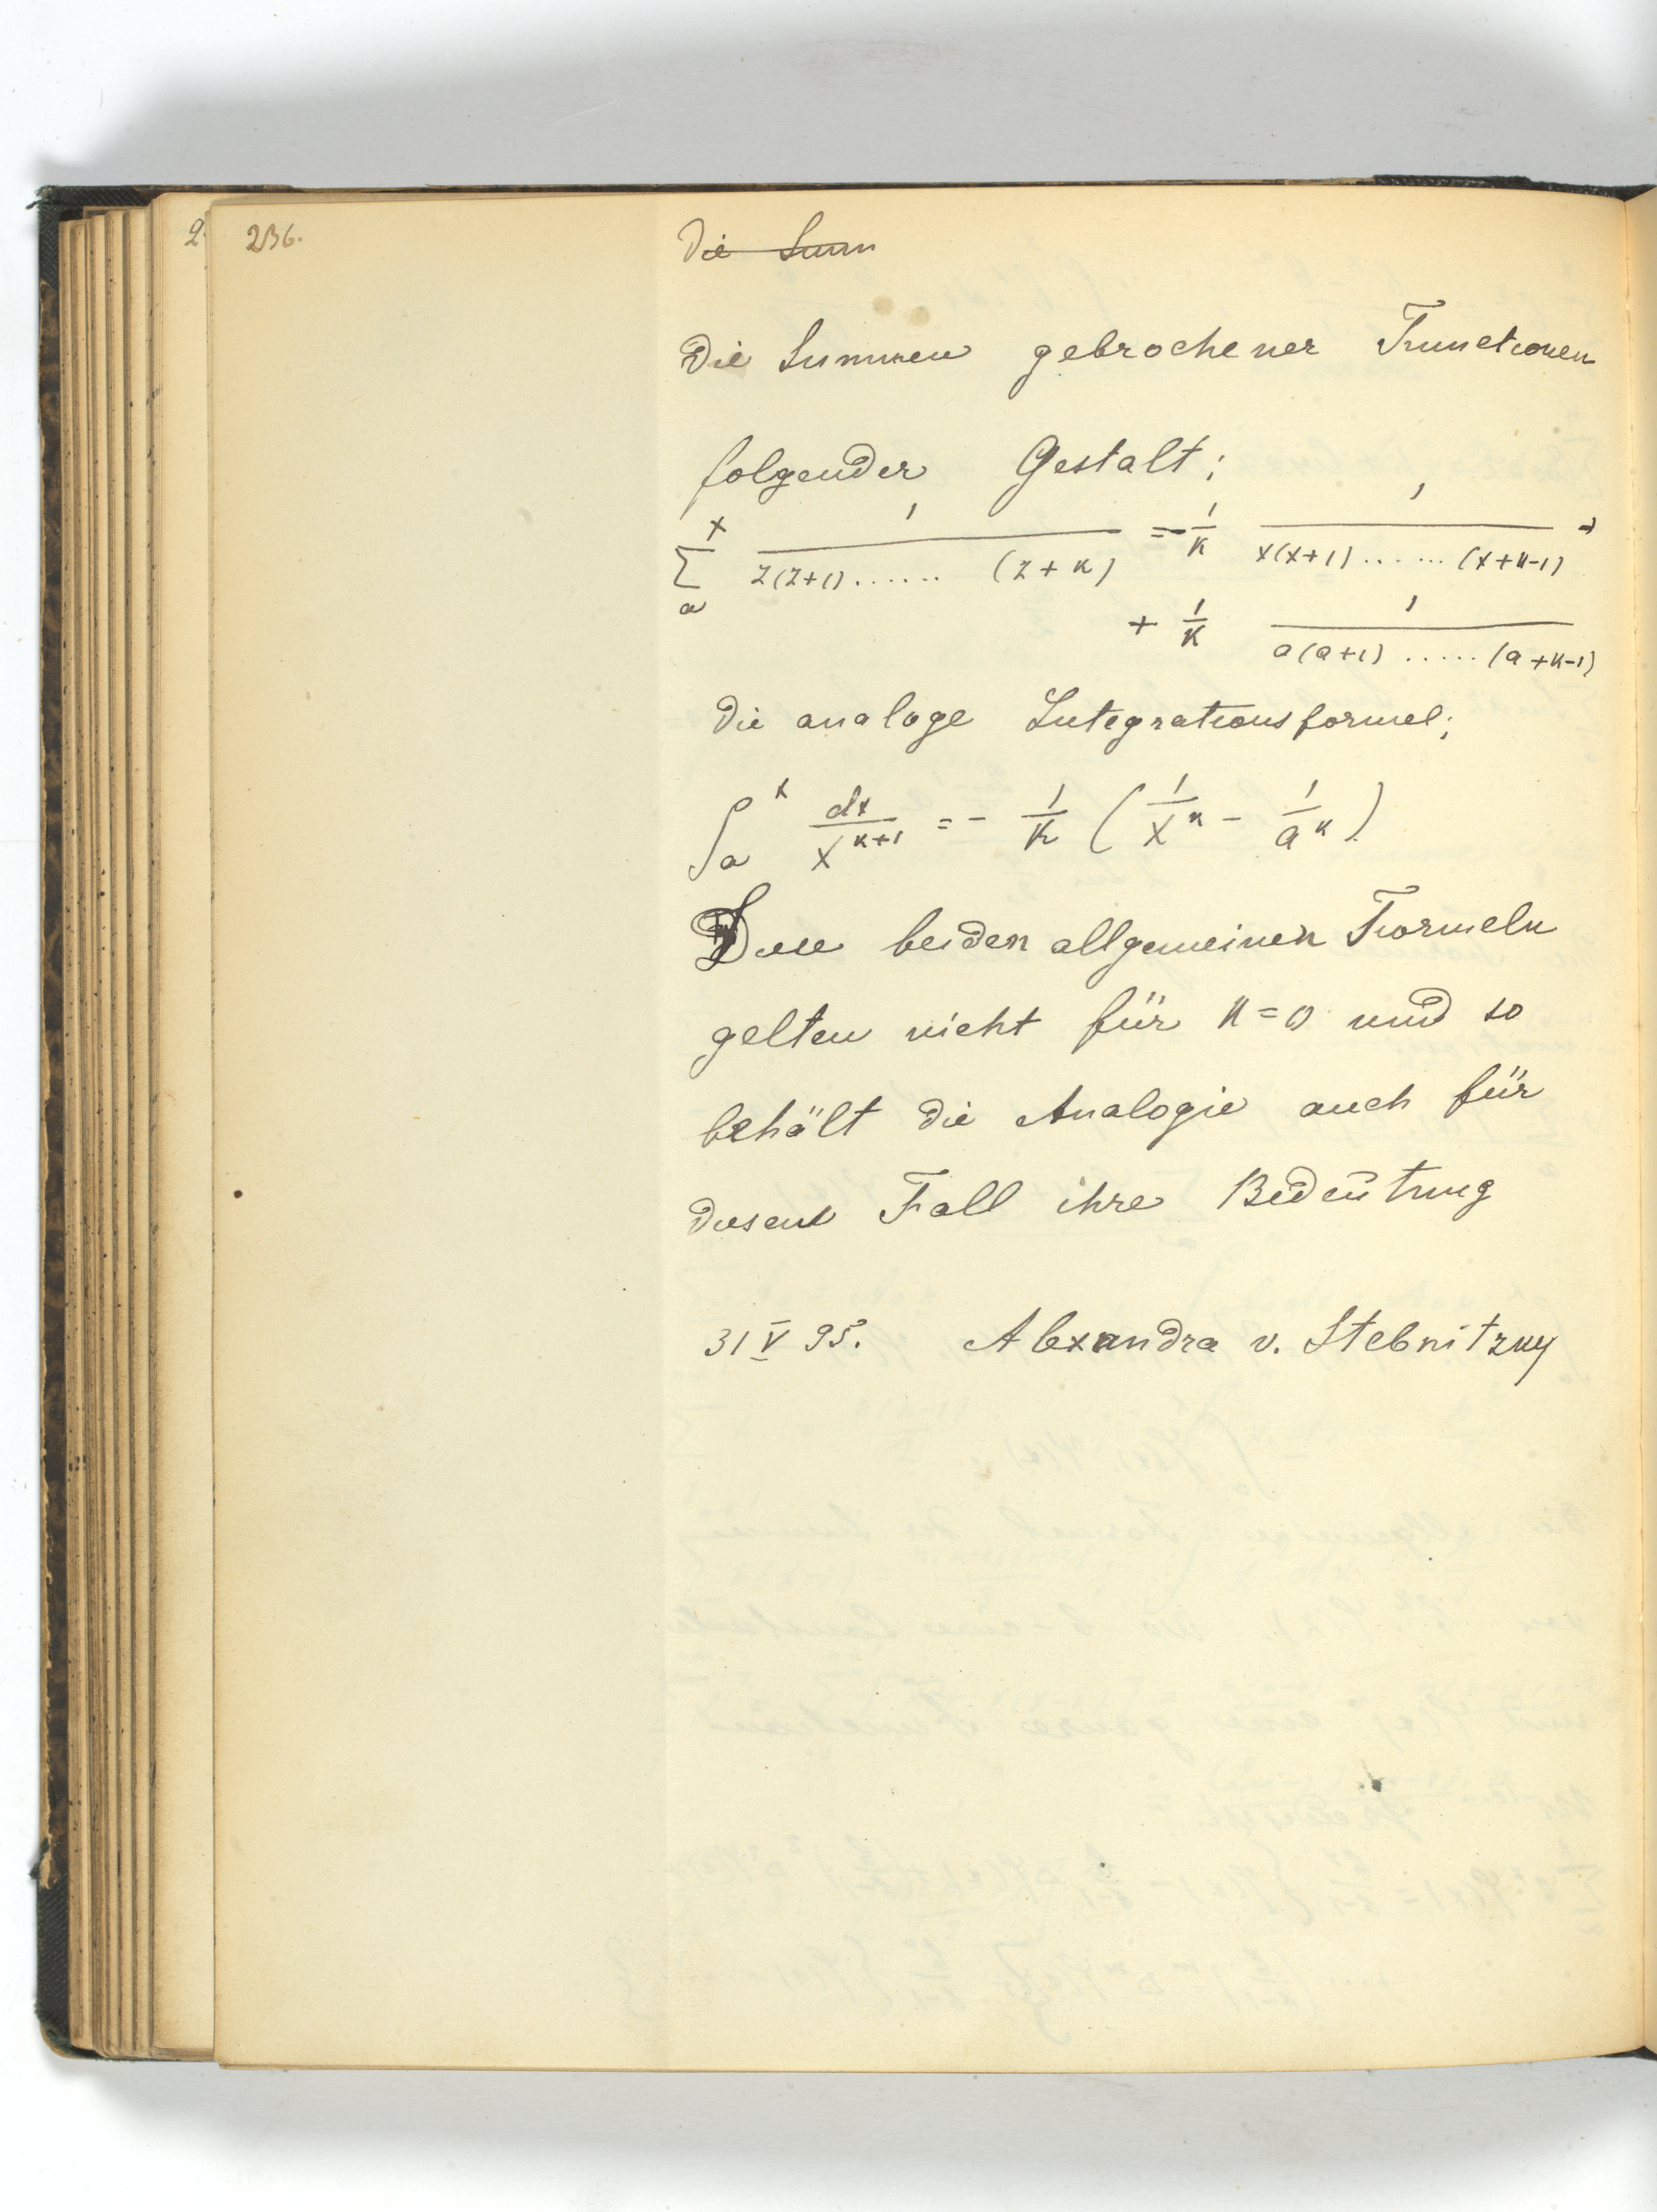 236.
Die Sum
Die Summen gebrochener Functionen
folgender Gestalt;
\sum_a^x \frac{1}{z(z+1)......(z+k)} = -\frac{1}{k} \frac{1}{x(x+1)......(x+k-1)} +
+ \frac{1}{k} \frac{1}{a(a+1).....(a+k-1)}
Die analoge Integrationsformel;
\int_a^x \frac{dx}{x^{k+1}} = - \frac{1}{k} \left( \frac{1}{x^k} - \frac{1}{a^k} \right)
Diese beiden allgemeinen Formeln
gelten nicht für k=0 und so
behält die Analogie auch für
diesen Fall ihre Bedeutung
31 V 95. Alexandra v. Stebnitzky